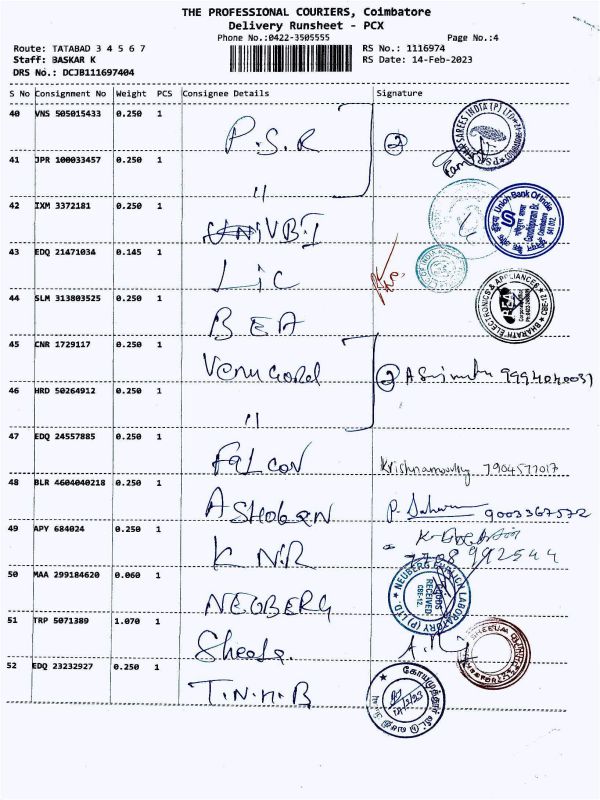 THE PROFESSIONAL COURIERS, Coimbatore
Delivery Runsheet - PCX
Phone No.:0422-3505555
Page No.:4
Route: TATABAD 3 4 5 6 7
RS No.: 1116974
Staff: BASKAR K
RS Date: 14-Feb-2023
DRS No.: DCJB111697404
S No Consignment No Weight PCS Consignee Details Signature
40 VNS 505015433 0.250 1 P.S.R 2
41 JPR 100033457 0.250 1 "
42 IXM 3372181 0.250 1 V.B.I
Union Bank Of India
43 EDQ 21471034 0.145 1 LIC
44 SLM 313803525 0.250 1 B E A
BHARATH ELECTRONICS & APPLIANCES
CBE-12
45 CNR 1729117 0.250 1 2
46 HRD 50264912 0.250 1 "
47 EDQ 24557885 0.250 1 FALCON Krishnamoorthy 7904577017
48 BLR 4604040218 0.250 1 9003367572
49 APY 684024 0.250 1 K N.R
50 MAA 299184620 0.060 1 NEUBERG
NEUBERG EHRLICH LABORATORY (P) LTD.
RECEIVED
CBE-12.
51 TRP 5071389 1.070 1
52 EDQ 23232927 0.250 1 T.N.H.B